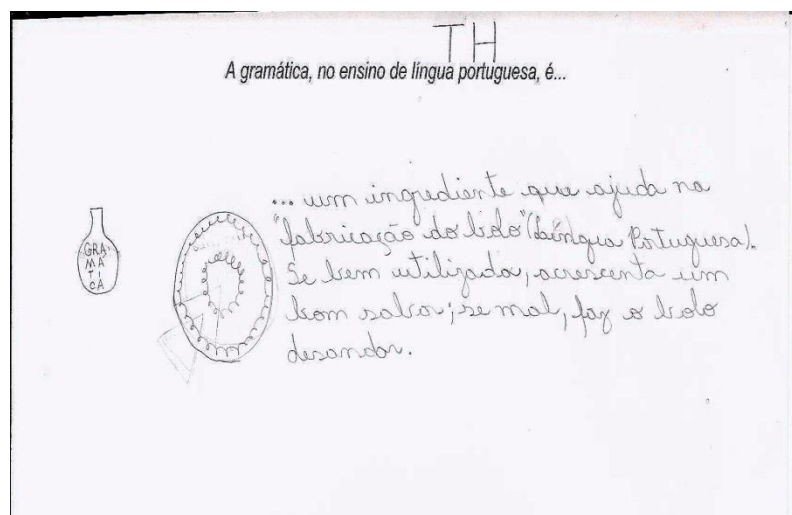 TH
A gramática, no ensino de língua portuguesa, é...
... um ingrediente que ajuda na
"fabricação do bolo" (Língua Portuguesa).
Se bem utilizado, acrescenta um
bom sabor; se mal, faz o bolo
desandar.
GRA-
MÁ
TI
CA